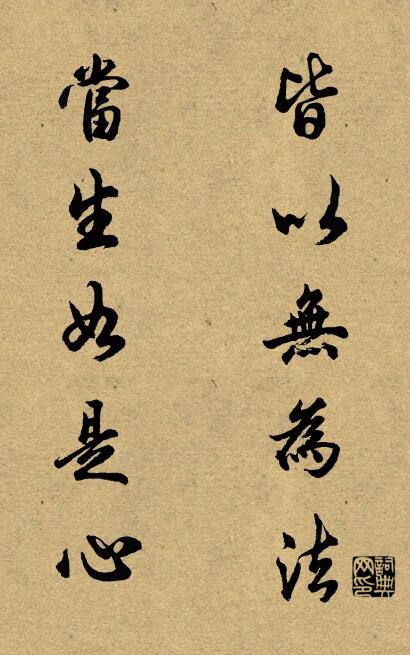 皆以無為法
當生如是心
詞典网印